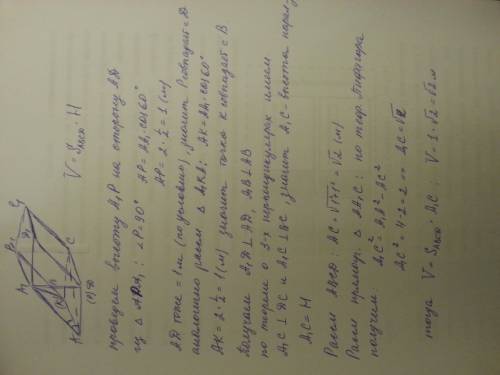 V = S_ABCD · H
проведем высоту A₁P на сторону AD
из △ APA₁: ∠P = 90° AP = AA₁ cos 60°
AP = 2 · ½ = 1 (м)
AD тоже = 1 м (по условию), значит P совпадает с D
аналогично рассм △ A₁KA: AK = AA₁ cos 60°
AK = 2 · ½ = 1 (м) значит точка K совпадает с B
получаем A₁D ⊥ AD A₁B ⊥ AB
по теореме о 3-х перпендикулярах имеем
A₁C ⊥ DC и A₁C ⊥ BC, значит A₁C - высота
A₁C = H
Рассм ABCD: AC = √1²+1² = √2 (м)
Рассм прямоуг. △ AA₁C: по теор. Пифагора
получим A₁C² = A₁A² - AC²
A₁C² = 4 - 2 = 2 A₁C = √2
тогда V = S_ABCD · A₁C; V = 1 · √2 = √2 м